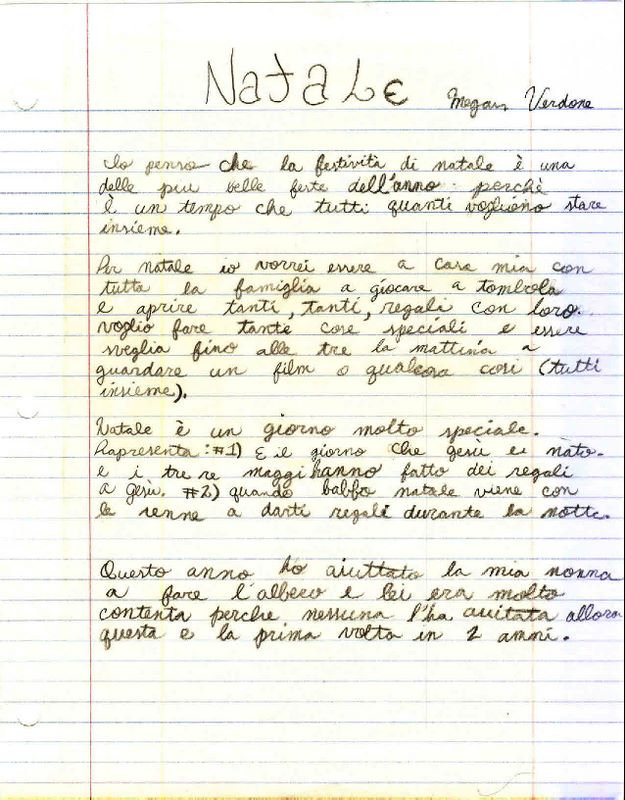 Natale Megan Verdone
Io penso che la festività di natale è una
delle piu belle feste dell'anno perchè
È un tempo che tutti quanti vogliono stare
insieme.
Per natale io vorrei essere a casa mia con
tutta la famiglia a giocare a tombola
e aprire tanti, tanti, regali con loro.
voglio fare tante cose speciali e essere
sveglia fino alle tre la mattina a
guardare un film o qualcosa cosi (tutti
insieme).
Natale è un giorno molto speciale.
Rapresenta: #1) E il giorno che gesù e nato.
e i tre re maggi hanno fatto dei regali
a gesù. #2) quando babbo natale viene con
le renne a darti regali durante la notte.
Questo anno ho aiuttato la mia nonna
a fare l'albero e lei era molto
contenta perche nessuna l'ha auitata allora
questa e la prima volta in 2 anni.